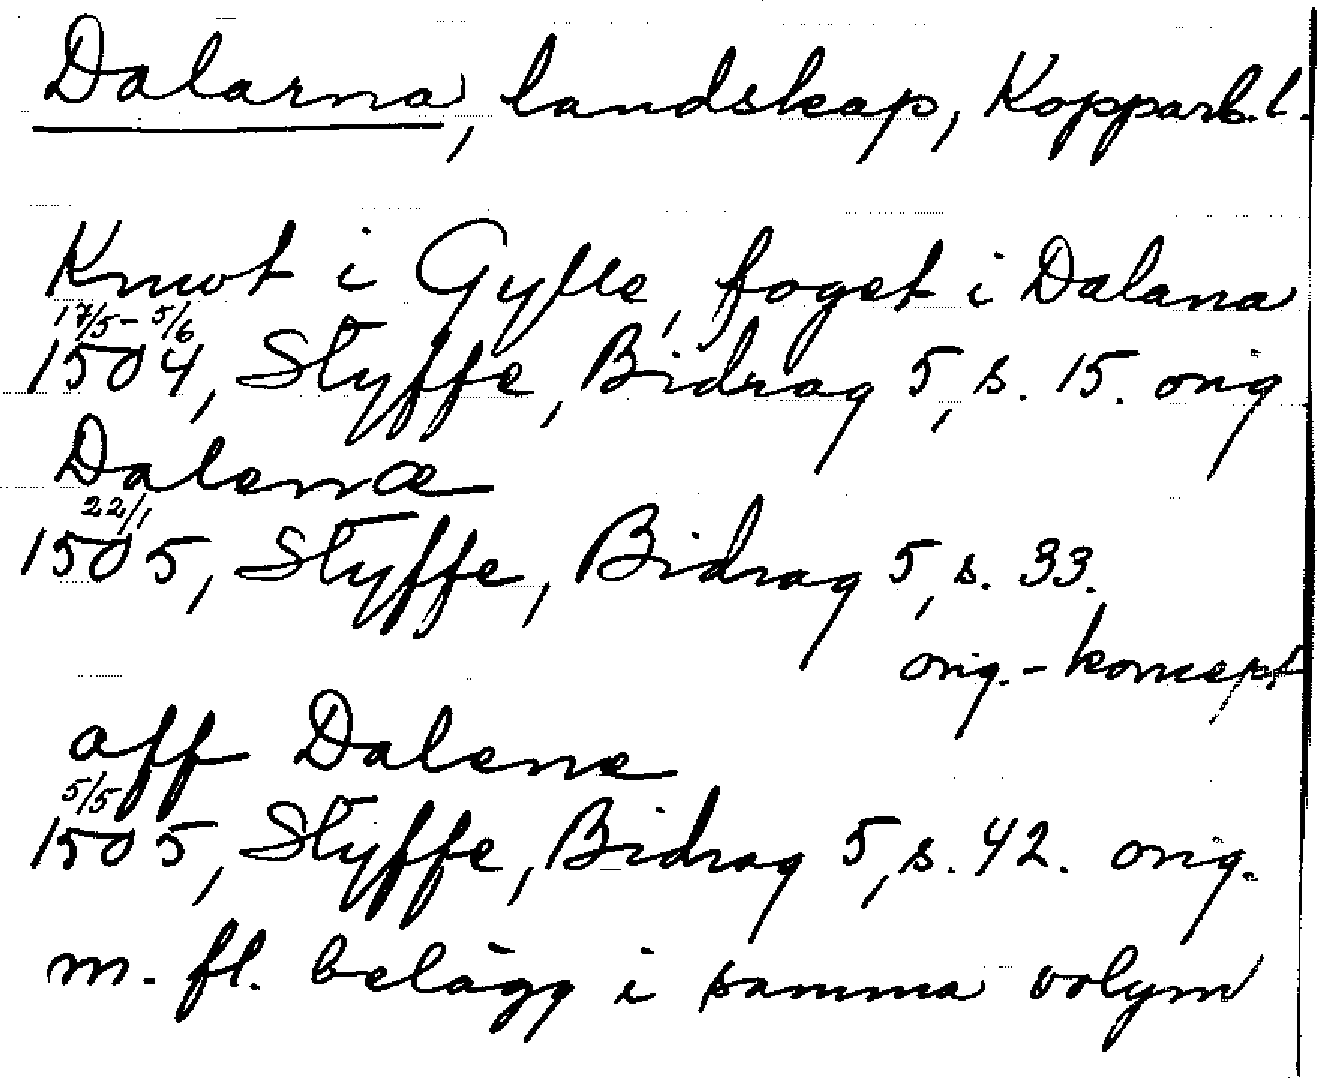 Dalarna, landskap, Kopparb. l.
Knwt i Gylle, foget i Dalana
17/5 - 5/6
1504, Styffe, Bidrag 5, s. 15. orig
Dalenæ
22/1
1505, Styffe, Bidrag 5, s. 33.
orig.-koncept
aff Dalene
5/5
1505, Styffe, Bidrag 5, s. 42. orig.
m. fl. belägg i samma volym